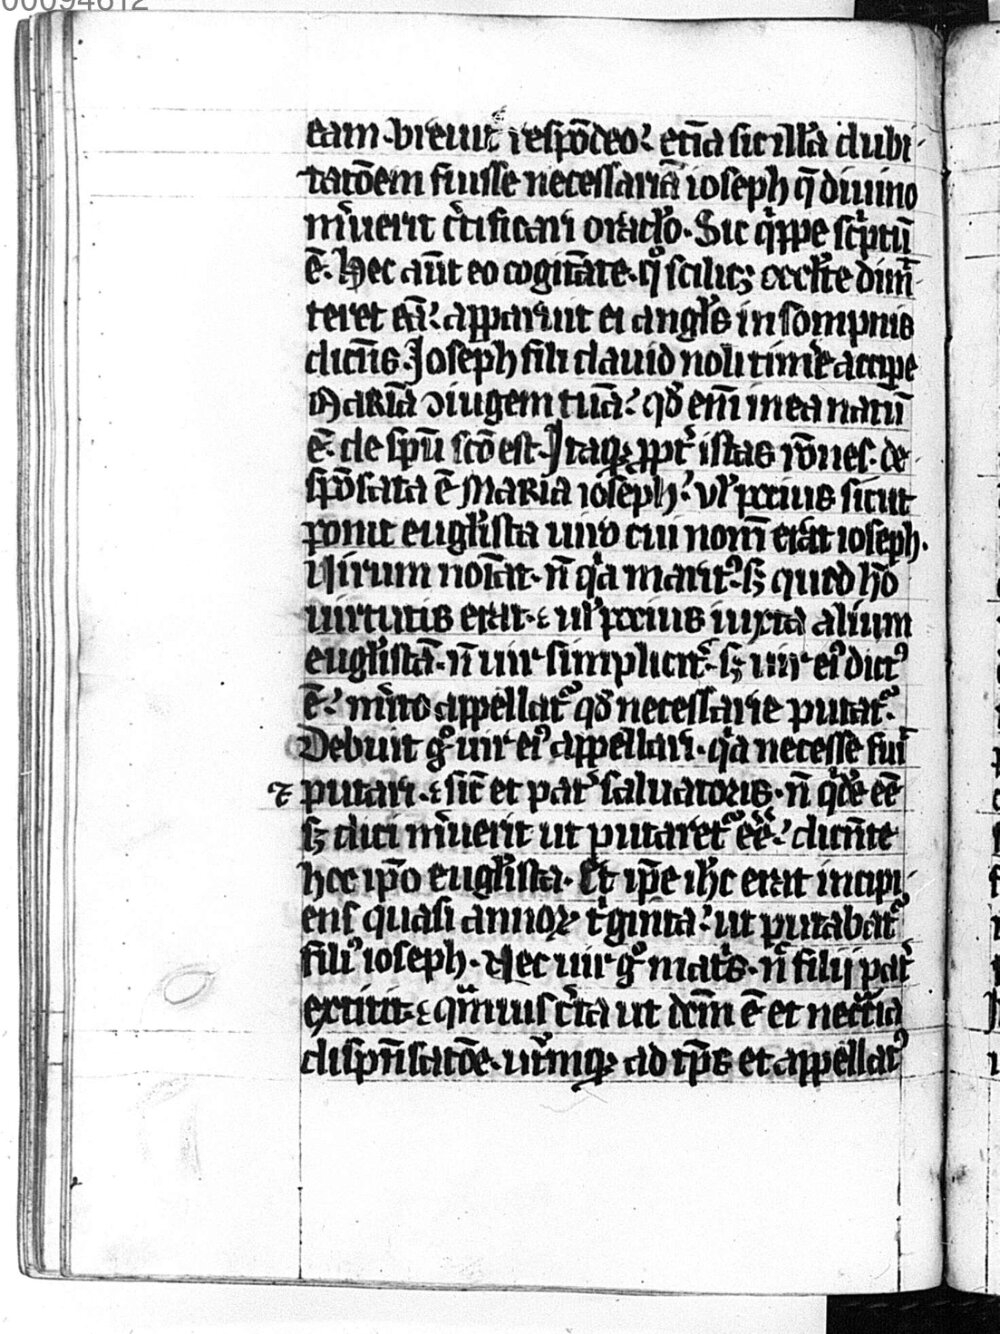 00094612
eam. breuit̾ respōdeo? etiā sic illā dubi
tatōem fuisse necessariā ioseph q̄ diuino
m̾uerit c̾tificari orac̾lo. Sic q̾ppe sc̾ptū
ē. Hec aūt eo cogitāte. q̾ scilicꝫ occl̾te dimi
teret eā? apparuit ei angl̾s in sompnis
dicēs. Ioseph fili dauid noli tim̾e accipe
Mariā ꝯiugem tuā? qd̾ em̄ in ea natū
ē. de sp̄u sc̄o est. Itaqꝫ ꝓpt̾ istas rōnes. de
spōsata ē Maria ioseph? ul̾ pocius sicut
ponit eugl̾ista uiro cui nom̄ erat ioseph.
Uirum noīat. n̄ q̾a marit̾? sꝫ quod hō
uirtutis erat. ⁊ ul̾ pocius iuxta alium
eugl̾istā. n̄ uir simplicit̾. sꝫ uir ei᾽ dict᾽
ē? m̾ito appellat᾽ qd̾ necessarie putat᾽.
Debuit g̾ uir ei᾽ appellari. q̾a necesse fuit
⁊ putari. ⁊ sic̄ et pat̾ saluatoris. n̄ q̾dē eē
sꝫ dici m̾uerit ut putaret᾽ eē? dicēte
hoc ip̄o eugl̾ista. Et ip̄e ih̄c erat incipi
ens quasi annoꝝ t̾ginta? ut putabat᾽
fili᾽ ioseph. Nec uir g̾ mat̾s. n̄ filij pat̾
extitit. ⁊ q̄muis c̾ta ut dc̄m ē et nec̄c̄ia
dispēsatōe. ut̾mqꝫ ad tp̄s et appellat᾽